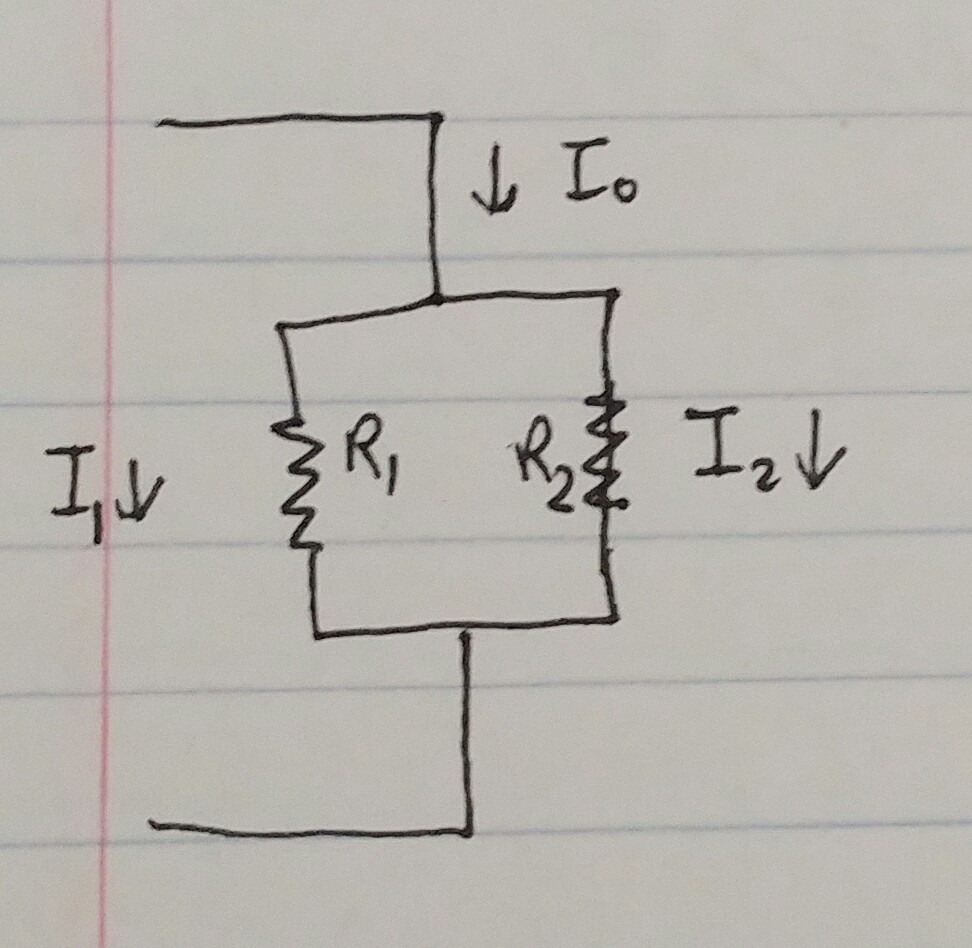 ↓ I₀
I₁↓ R₁ R₂ I₂↓